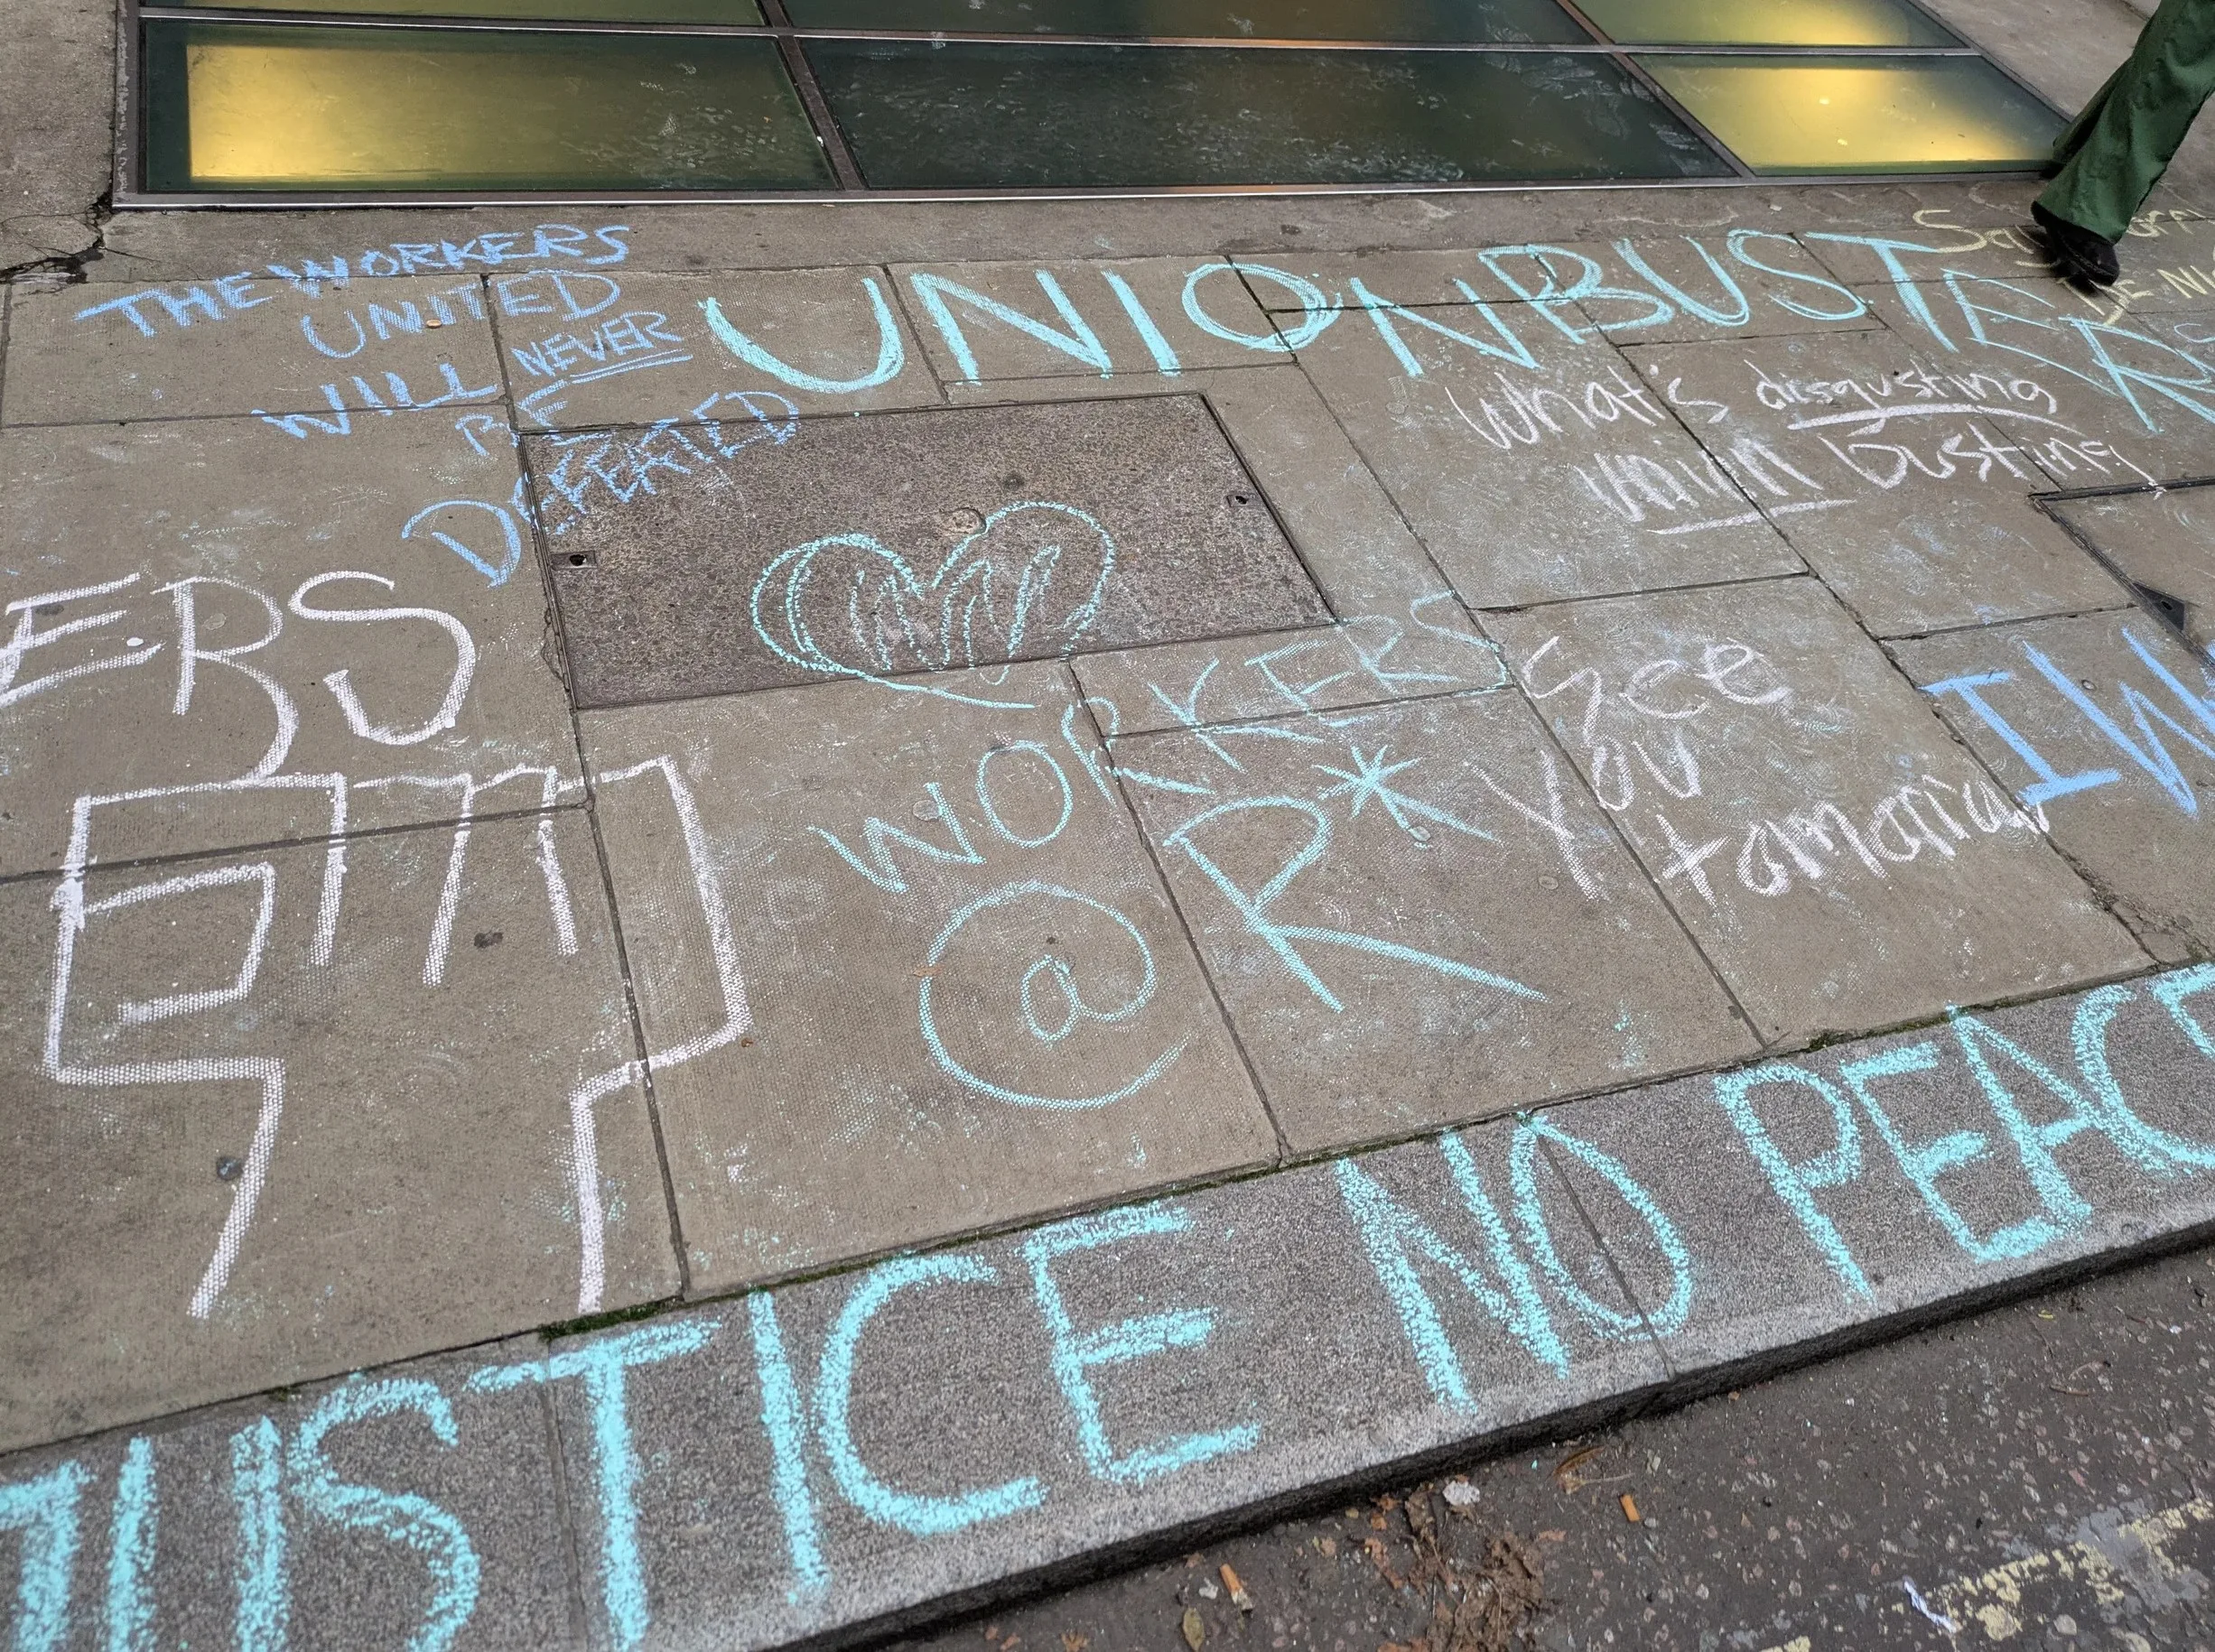 THE WORKERS
UNITED
WILL NEVER
BE
DEFEATED
UNION BUSTERS
What's disgusting
union busting
ERS
WORKERS
@ R*
See
You
tomorrow
IW
JUSTICE NO PEACE